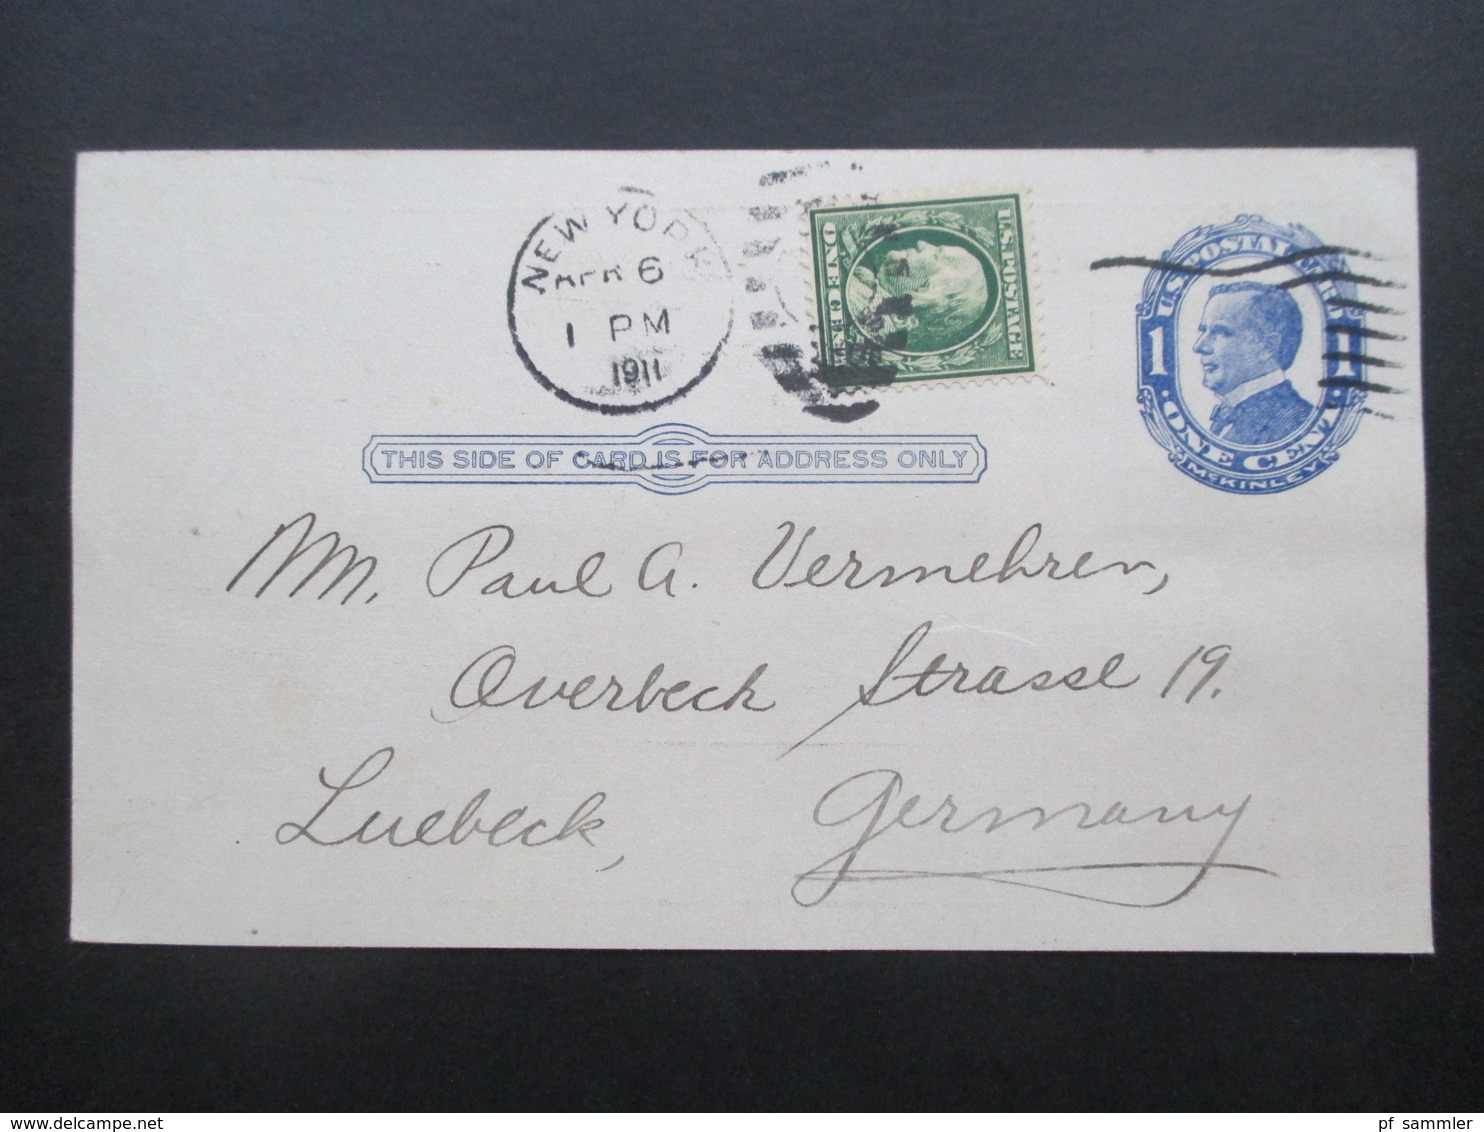 NEW YORK
APR 6
1 PM
1911
U.S. POSTAGE
ONE CENT
U.S. POSTAL CARD
1 1
· ONE CENT ·
McKINLEY
THIS SIDE OF CARD IS FOR ADDRESS ONLY
Mr. Paul A. Vermehren,
Overbeck Strasse 19.
Luebeck, Germany
www.delcampe.net
pf_sammler